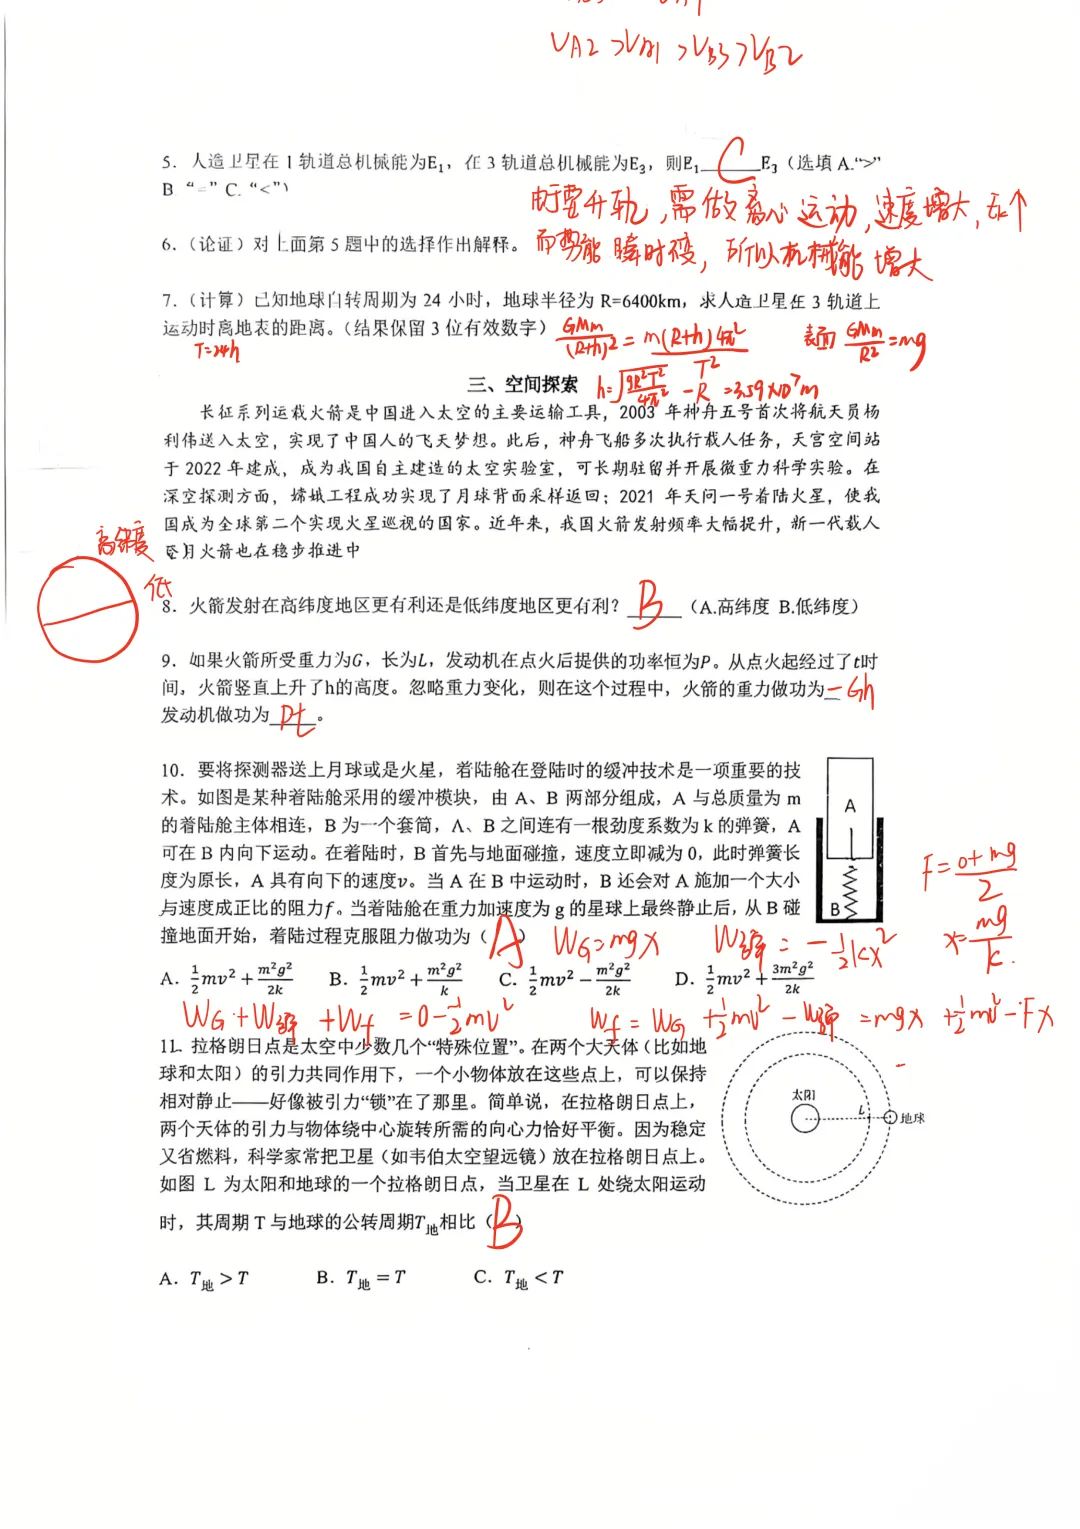 VA2 >VB1 >VB3>VB2
5. 人造卫星在 1 轨道总机械能为E₁，在 3 轨道总机械能为E₃，则E₁ C E₃（选填 A.“>”
B “=” C. “<”）
由于要升轨，需做离心运动，速度增大，Ek↑
6.（论证）对上面第 5 题中的选择作出解释。
而势能瞬时不变，所以机械能增大
7.（计算）已知地球自转周期为 24 小时，地球半径为 R=6400km，求人造卫星在 3 轨道上
运动时离地表的距离。（结果保留 3 位有效数字）
T=24h
GMm/(R+h)² = m(R+h)4π²/T² 表面 GMm/R² =mg
三、空间探索
h=√gR²T²/4π² -R =3.59×10⁷m
长征系列运载火箭是中国进入太空的主要运输工具，2003 年神舟五号首次将航天员杨
利伟送入太空，实现了中国人的飞天梦想。此后，神舟飞船多次执行载人任务，天宫空间站
于 2022 年建成，成为我国自主建造的太空实验室，可长期驻留并开展微重力科学实验。在
深空探测方面，嫦娥工程成功实现了月球背面采样返回；2021 年天问一号着陆火星，使我
国成为全球第二个实现火星巡视的国家。近年来，我国火箭发射频率大幅提升，新一代载人
登月火箭也在稳步推进中
高纬度
低
8. 火箭发射在高纬度地区更有利还是低纬度地区更有利？ B （A.高纬度 B.低纬度）
9. 如果火箭所受重力为G，长为L，发动机在点火后提供的功率恒为P。从点火起经过了t时
间，火箭竖直上升了h的高度。忽略重力变化，则在这个过程中，火箭的重力做功为 -Gh
发动机做功为 Pt 。
10. 要将探测器送上月球或是火星，着陆舱在登陆时的缓冲技术是一项重要的技
术。如图是某种着陆舱采用的缓冲模块，由 A、B 两部分组成，A 与总质量为 m
的着陆舱主体相连，B 为一个套筒，A、B 之间连有一根劲度系数为 k 的弹簧，A
可在 B 内向下运动。在着陆时，B 首先与地面碰撞，速度立即减为 0，此时弹簧长
度为原长，A 具有向下的速度v。当 A 在 B 中运动时，B 还会对 A 施加一个大小
与速度成正比的阻力f。当着陆舱在重力加速度为 g 的星球上最终静止后，从 B 碰
撞地面开始，着陆过程克服阻力做功为（ A ）
A
B
F=0+mg/2
x=mg/k.
WG=mgx W弹=-½kx²
A. ½mv²+m²g²/2k B. ½mv²+m²g²/k C. ½mv²−m²g²/2k D. ½mv²+3m²g²/2k
WG+W弹+Wf=0-½mv² Wf=WG+½mv²-W弹=mgx+½mv²-Fx
11. 拉格朗日点是太空中少数几个“特殊位置”。在两个大天体（比如地
球和太阳）的引力共同作用下，一个小物体放在这些点上，可以保持
相对静止——好像被引力“锁”在了那里。简单说，在拉格朗日点上，
两个天体的引力与物体绕中心旋转所需的向心力恰好平衡。因为稳定
又省燃料，科学家常把卫星（如韦伯太空望远镜）放在拉格朗日点上。
如图 L 为太阳和地球的一个拉格朗日点，当卫星在 L 处绕太阳运动
时，其周期 T 与地球的公转周期T地相比（ B ）
太阳
L
地球
A. T地 > T B. T地 = T C. T地 < T